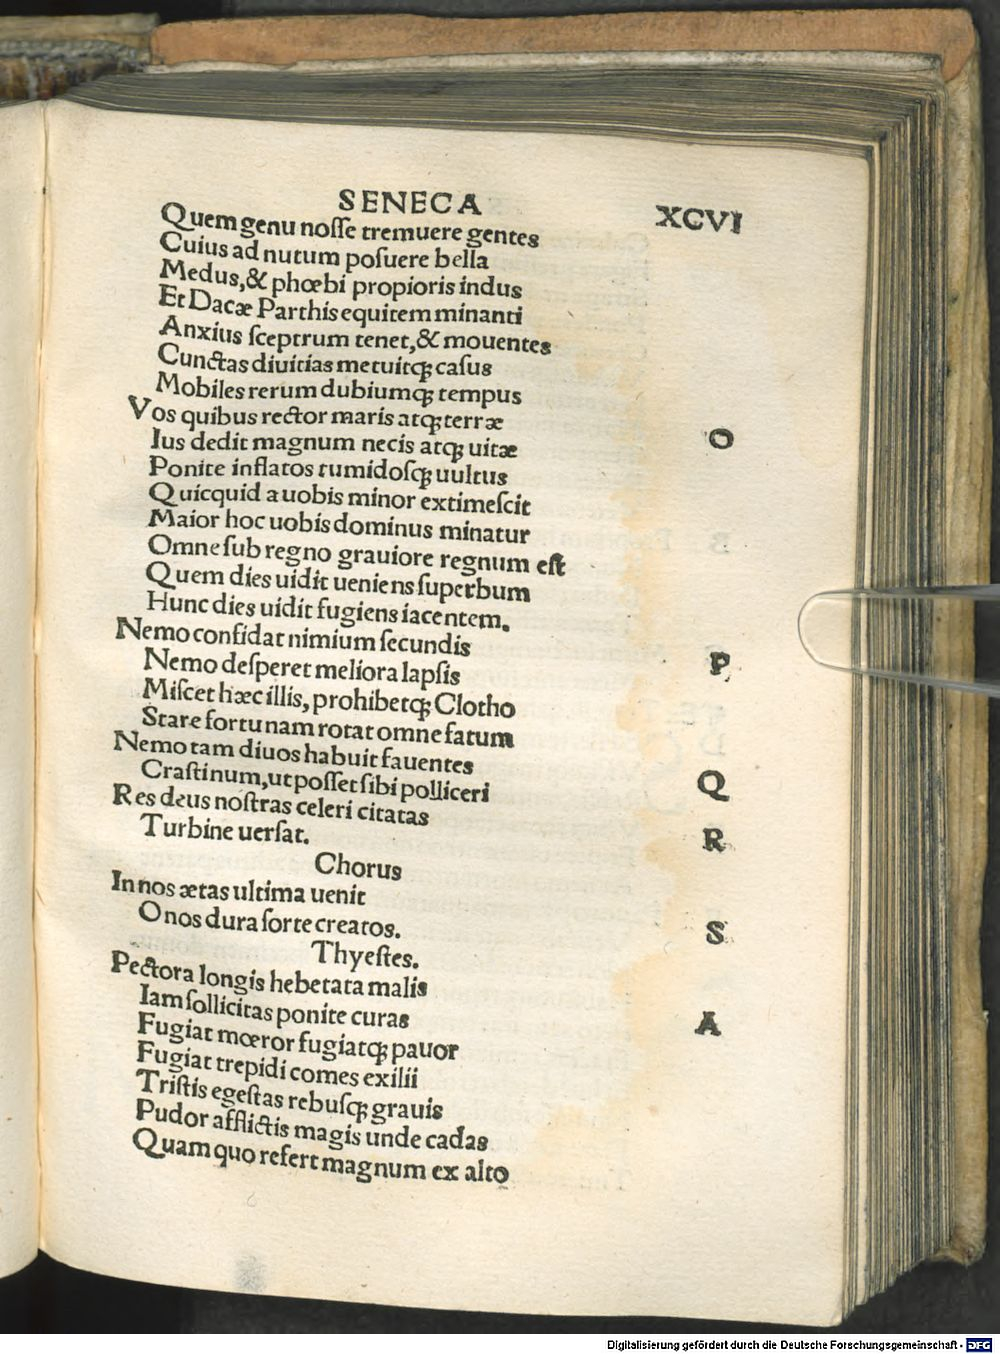 SENECA XCVI
Quem genu nosse tremuere gentes
Cuius ad nutum posuere bella
Medus,& phœbi propioris indus
Et Dacæ Parthis equitem minanti
Anxius sceptrum tenet,& mouentes
Cunctas diuitias metuitqꝫ casus
Mobiles rerum dubiumqꝫ tempus
Vos quibus rector maris atqꝫ terræ O
Ius dedit magnum necis atqꝫ uitæ
Ponite inflatos tumidosqꝫ uultus
Quicquid a uobis minor extimescit
Maior hoc uobis dominus minatur
Omne sub regno grauiore regnum est
Quem dies uidit ueniens superbum
Hunc dies uidit fugiens iacentem.
Nemo confidat nimium secundis P
Nemo desperet meliora lapsis
Miscet hæc illis, prohibetqꝫ Clotho
Stare fortunam rotat omne fatum
Nemo tam diuos habuit fauentes Q
Crastinum,ut posset sibi polliceri
Res deus nostras celeri citatas R
Turbine uersat.
Chorus
In nos ætas ultima uenit S
O nos dura sorte creatos.
Thyestes.
Pectora longis hebetata malis A
Iam sollicitas ponite curas
Fugiat mœror fugiatqꝫ pauor
Fugiat trepidi comes exilii
Tristis egestas rebusqꝫ grauis
Pudor afflictis magis unde cadas
Quam quo refert magnum ex alto
Digitalisierung gefördert durch die Deutsche Forschungsgemeinschaft - DFG